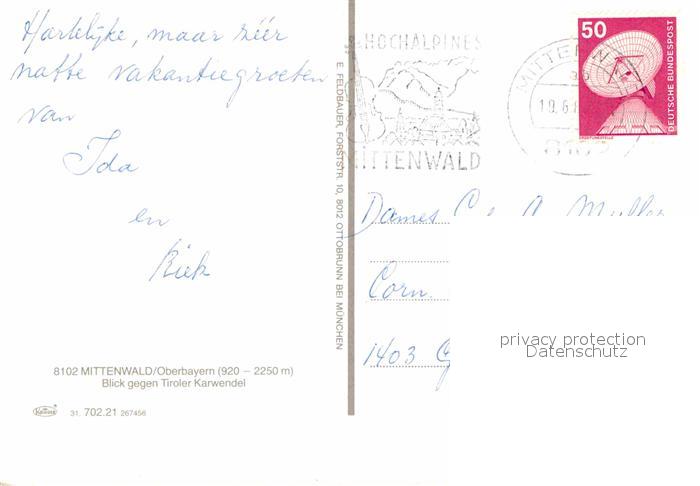 Hartelijke, maar zéér
natte vakantiegroeten
van
Ida
en
Riek
8102 MITTENWALD/Oberbayern (920 – 2250 m)
Blick gegen Tiroler Karwendel
Krüger
31. 702.21 267456
E. FELDBAUER, FORSTSTR. 10, 8012 OTTOBRUNN BEI MÜNCHEN
HOCHALPINES
MITTENWALD
MITTENW
19.6.
50
DEUTSCHE BUNDESPOST
ERDEFUNKSTELLE
Dames C. A. Muller
Corn.
1403
privacy protection
Datenschutz